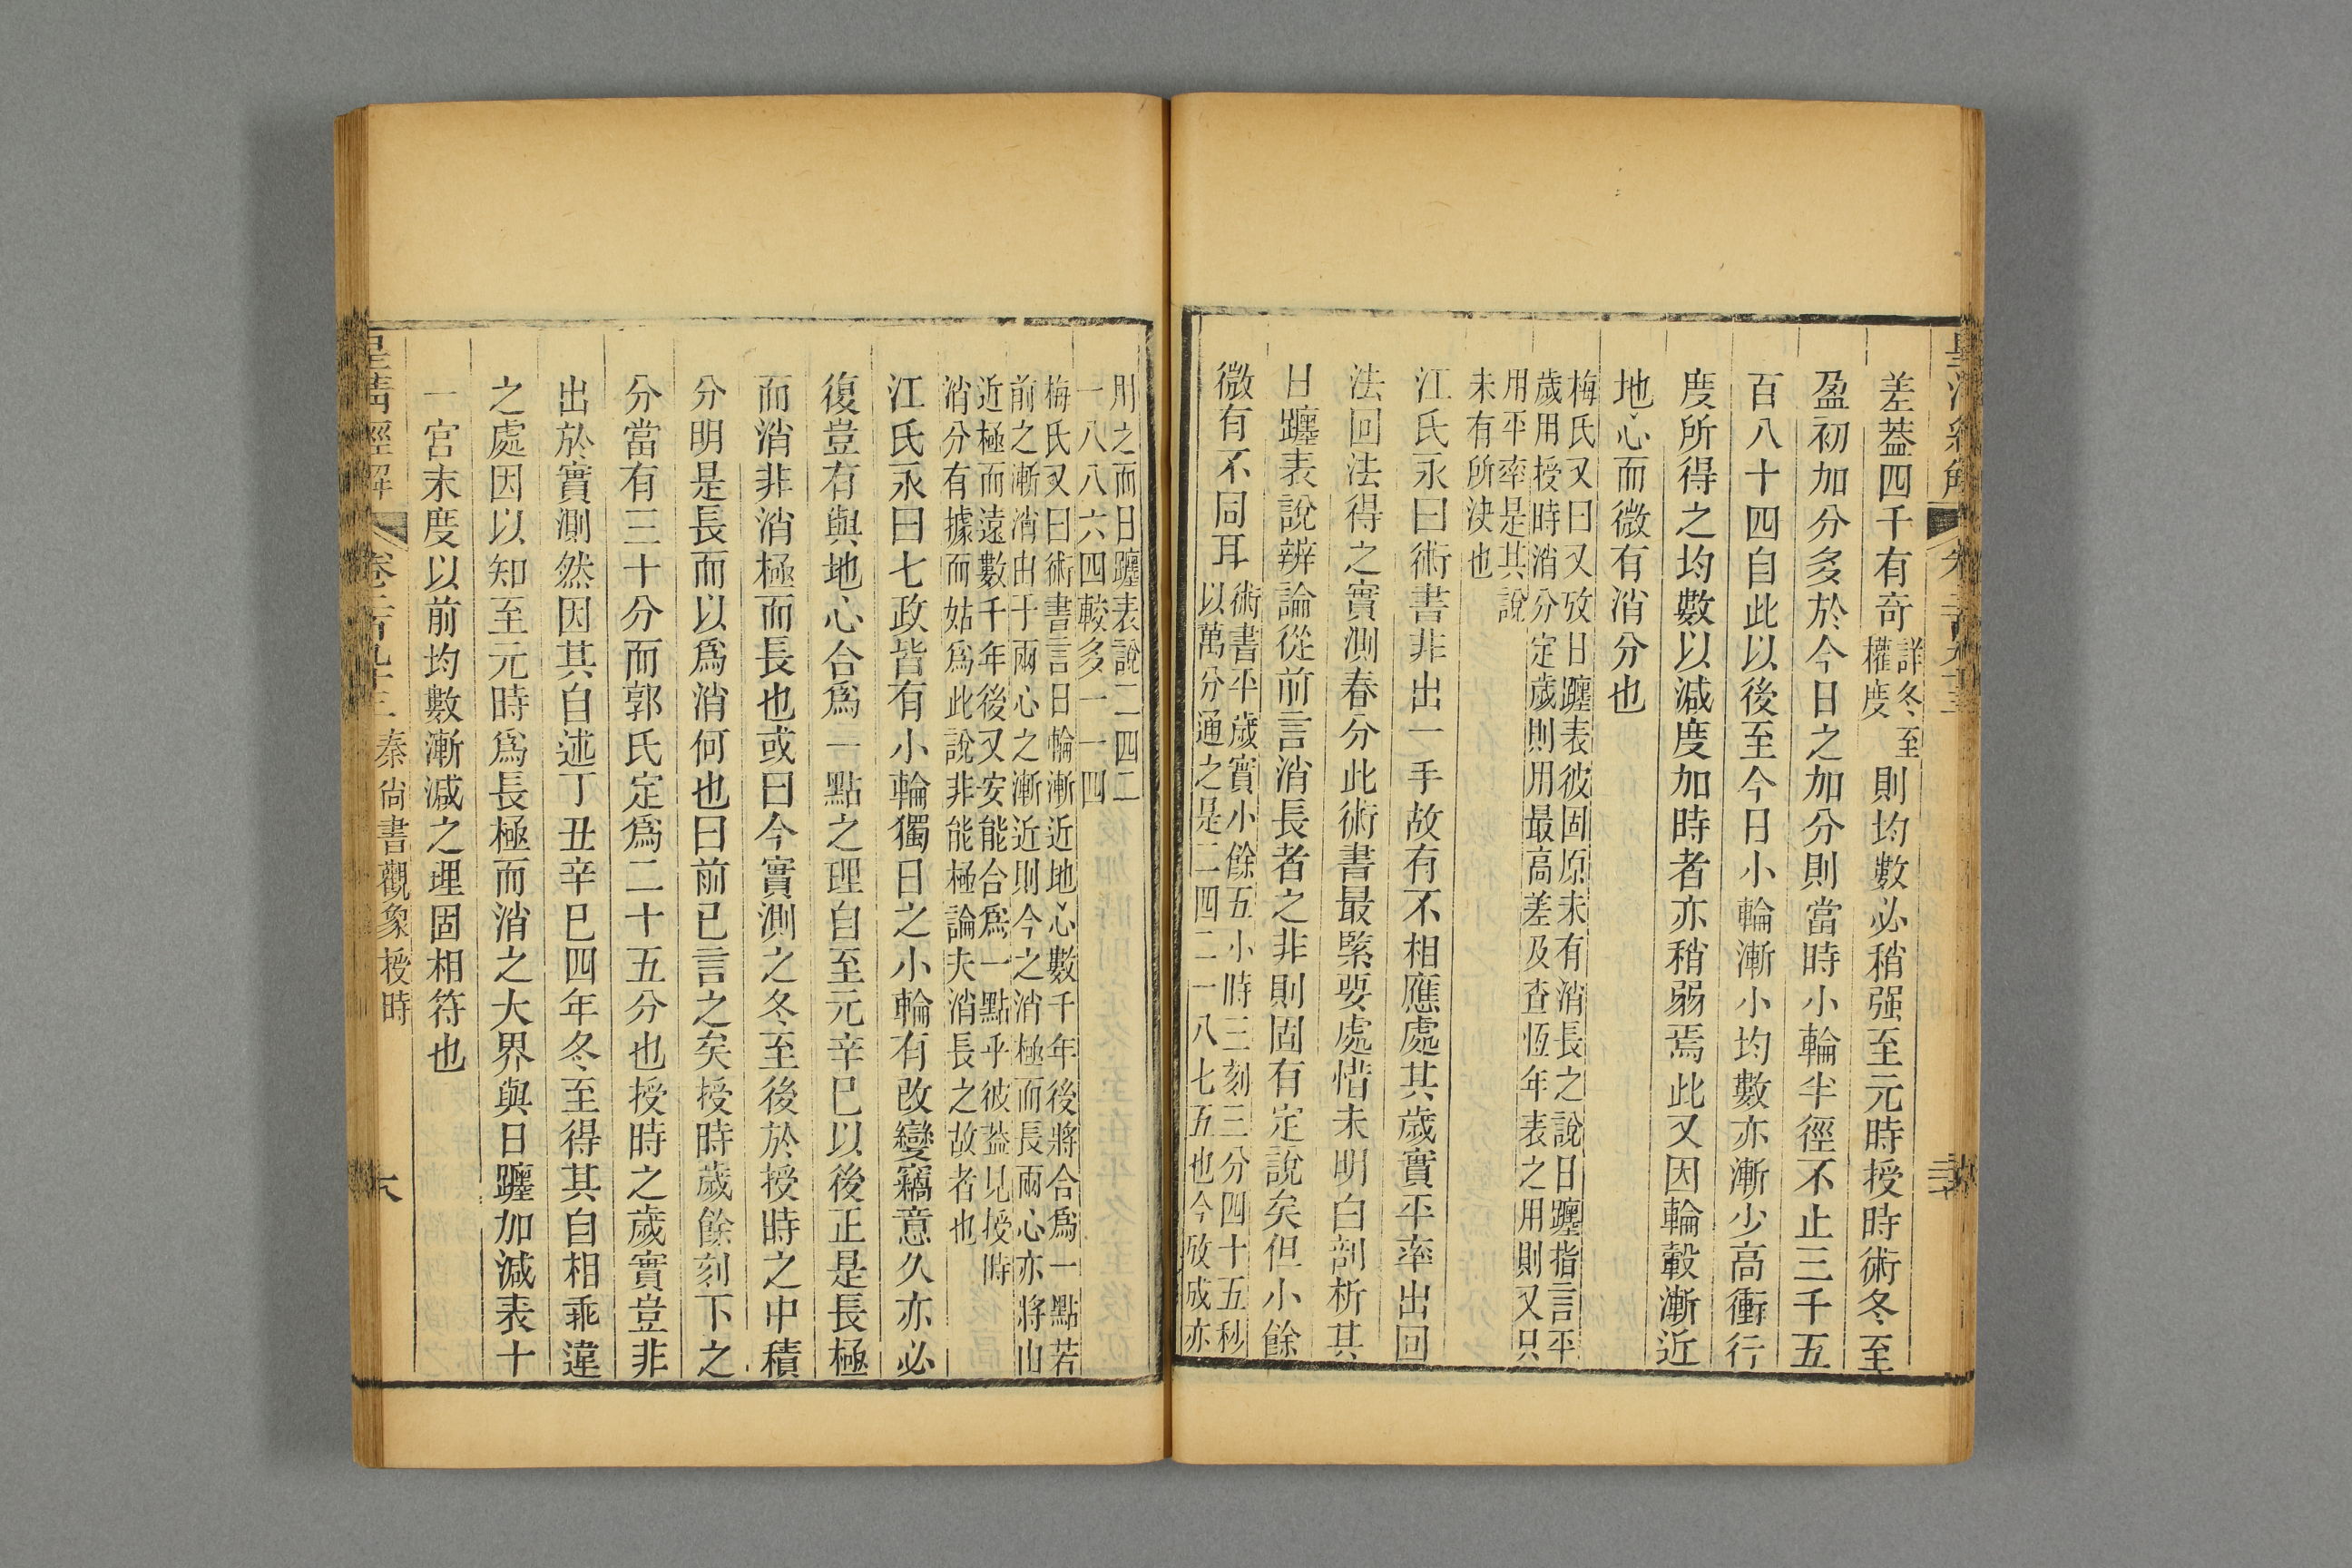 差葢四千有奇詳冬至權度則均數必稍强至元時授時術冬至
盈初加分多於今日之加分則當時小輪半徑不止三千五
百八十四自此以後至今日小輪漸小均數亦漸少高衝行
度所得之均數以減度加時者亦稍弱焉此又因輪轂漸近
地心而微有消分也
梅氏又曰又攷日躔表彼固原未有消長之說日躔指言平
歲用授時消分定歲則用最高差及查恆年表之用則又只
用平率是其說
未有所決也
江氏永曰術書非出一手故有不相應處其歲實平率出回
法回法得之實測春分此術書最緊要處惜未明白剖析其
日躔表說辨論從前言消長者之非則固有定說矣但小餘
微有不同耳術書平歲實小餘五小時三刻三分四十五秒
以萬分通之是二四二一八七五也今攷成亦
用之而日躔表說二四二
一八八六四較多一一四
梅氏又曰術書言日輪漸近地心數千年後將合爲一點若
前之漸消由于兩心之漸近則今之消極而長兩心亦將由
近極而遠數千年後又安能合爲一點乎彼葢見授時
消分有據而姑爲此說非能極論夫消長之故者也
江氏永曰七政皆有小輪獨日之小輪有改變竊意久亦必
復豈有與地心合爲一點之理自至元辛巳以後正是長極
而消非消極而長也或曰今實測之冬至後於授時之中積
分明是長而以爲消何也曰前已言之矣授時歲餘刻下之
分當有三十分而郭氏定爲二十五分也授時之歲實豈非
出於實測然因其自述丁丑辛巳四年冬至得其自相乖違
之處因以知至元時爲長極而消之大界與日躔加減表十
一宮末度以前均數漸減之理固相符也
皇清經解 卷二百九十三 秦尙書觀象授時